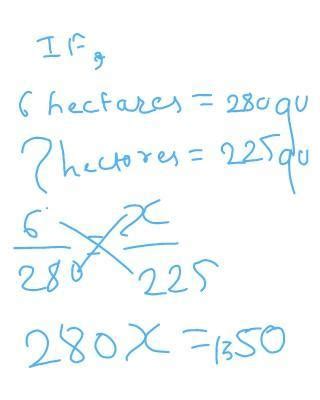 IF,
6 hectares = 280 qu
? hectores = 225 qu
6/280 = x/225
280x = 1350